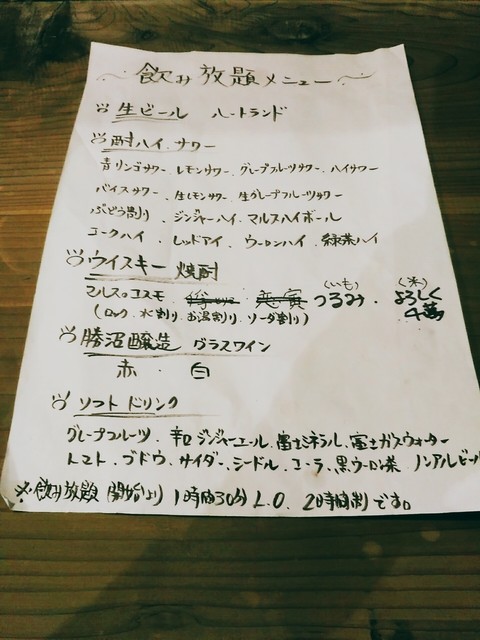 〜飲み放題メニュー〜
生ビール ハートランド
酎ハイ、サワー
青リンゴサワー レモンサワー グレープフルーツサワー、ハイサワー
バイスサワー 生レモンサワー 生グレープフルーツサワー
ぶどう割り、ジンジャーハイ、マルスハイボール
コークハイ、レッドアイ、ウーロンハイ、緑茶ハイ
ウイスキー 焼酎
(いも) (米)
マルスコスモ つるみ・よろしく
(ロック、水割り、お湯割り、ソーダ割り)
勝沼醸造 グラスワイン
赤・白
ソフトドリンク
グレープフルーツ、辛口ジンジャーエール、富士ミネラル、富士ガスウォーター
トマト、ブドウ、サイダー、シードル、コーラ、黒ウーロン茶 ノンアルビール
※飲み放題 開始より1時間30分L.O. 2時間制です。